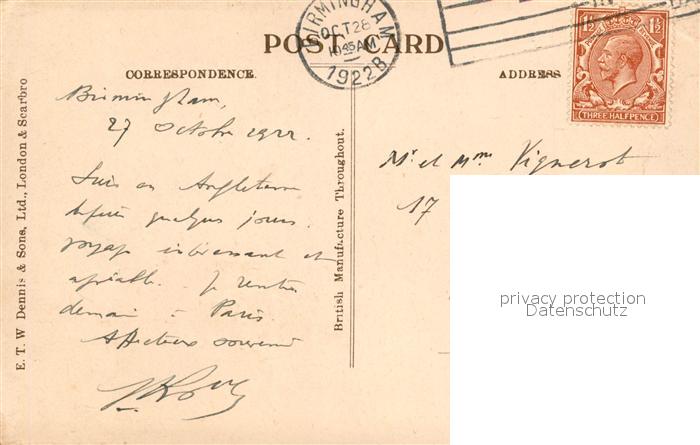 BIRMINGHAM
OCT 28
10 45 AM
1922
B
POST CARD
1½ 1½
THREE HALFPENCE
CORRESPONDENCE.
ADDRESS
E. T. W Dennis & Sons, Ltd., London & Scarbro
Birmingham,
27 Octobre 1922.
Suis en Angleterre
depuis quelques jours.
voyage intéressant et
agréable. Je rentre
demain à Paris.
Affectueux souvenir
British Manufacture Throughout.
Mr et Mme Vignerot
17
privacy protection
Datenschutz